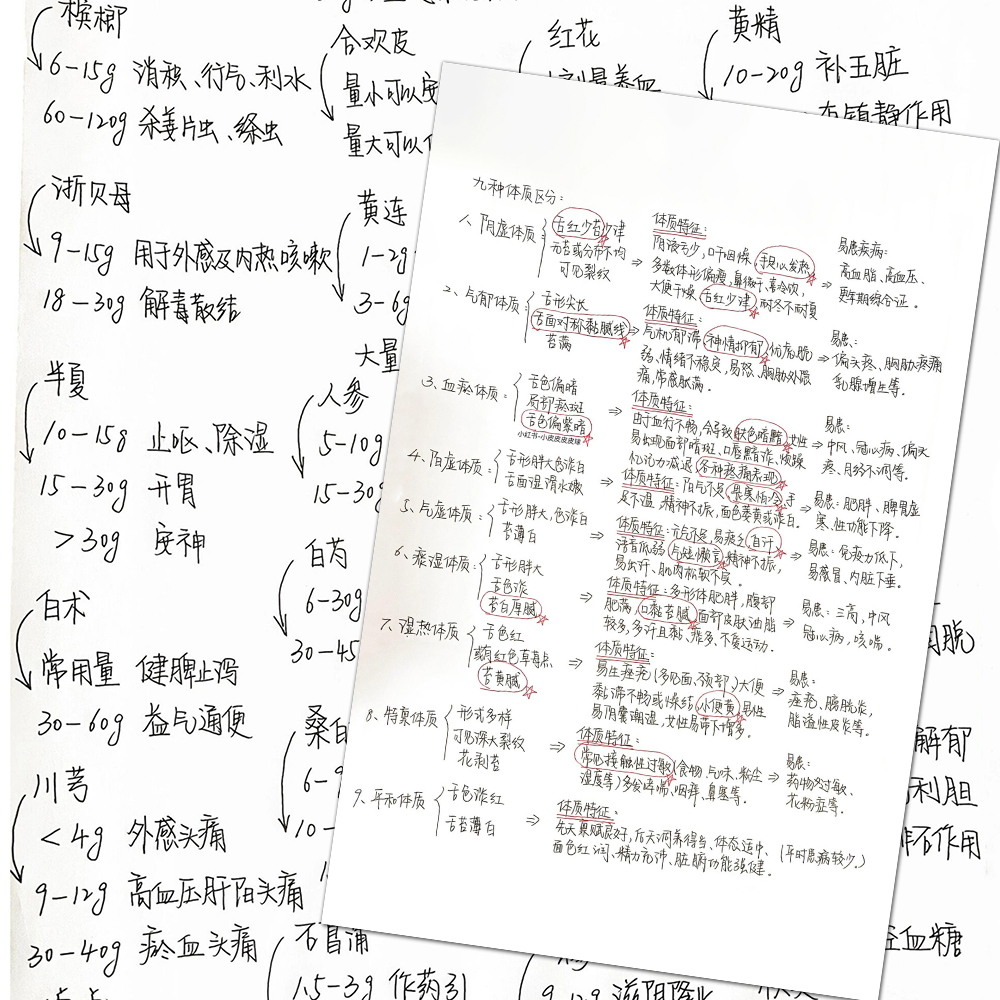 槟榔
6-15g 消积、行气、利水
60-120g 杀姜片虫、绦虫
浙贝母
9-15g 用于外感及内热咳嗽
18-30g 解毒散结
半夏
10-15g 止呕、除湿
15-30g 开胃
>30g 安神
白术
常用量 健脾止泻
30-60g 益气通便
川芎
<4g 外感头痛
9-12g 高血压肝阳头痛
30-40g 瘀血头痛
合欢皮
量小可以安
量大可以
黄连
1-2g
3-6g
大量
人参
5-10g
15-30g
白芍
6-30g
30-45
桑白
6-9
10-
石菖蒲
1.5-3g 作药引
红花
黄精
10-20g 补五脏
有镇静作用
解郁
利胆
作用
血糖
9-12g 滋阴降火
九种体质区分:
1、阴虚体质
舌红少苔少津
无苔或分布不均
可见裂纹
体质特征:
阴液亏少,口干咽燥,手足心发热,
多数体形偏瘦,鼻微干、喜冷饮,
大便干燥,舌红少津,耐冬不耐夏
易患疾病:
高血脂、高血压、
更年期综合征。
2、气郁体质
舌形尖长
舌面对称黏腻线
苔薄
体质特征:
气机郁滞,神情抑郁,忧虑脆
弱、情绪不稳定,易怒、胸胁外胀
痛,常感胀满。
易患:
偏头疼、胸胁疼痛
乳腺增生等。
3、血瘀体质:
舌色偏暗
局部瘀斑
舌色偏紫暗
小红书-小皮皮皮皮锋
体质特征:
由于血行不畅,会导致肤色暗黯,女性
易出现面部暗斑、口唇黯淡、烦躁
忆记力减退,各种疼痛表现
易患:
中风、冠心病、偏头
疼、月经不调等。
4、阳虚体质:
舌形胖大色淡白
舌面湿滑水嫩
体质特征:阳气不足,畏寒怕冷,手
足不温,精神不振,面色萎黄或淡白。
易患:肥胖、脾胃虚
寒、性功能下降。
5、气虚体质:
舌形胖大,色淡白
苔薄白
体质特征:元气不足,易疲乏,自汗
语音低弱,气短懒言,精神不振,
易出汗、肌肉松软不实。
易患:免疫力低下,
易感冒、内脏下垂。
6、痰湿体质:
舌形胖大
舌色淡
苔白厚腻
体质特征:多形体肥胖,腹部
肥满,口黏苔腻,面部皮肤油脂
较多,多汗且黏、痰多、不爱运动。
易患:三高,中风
冠心病,咳喘。
7、湿热体质
舌色红
或有红色草莓点
苔黄腻
体质特征:
易生痤疮(多见面、颈部,)大便
黏滞不畅或燥结,小便黄,男性
易阴囊潮湿,女性易带下增多。
易患:
痤疮、膀胱炎,
脂溢性皮炎等。
8、特禀体质
形式多样
可见深大裂纹
花剥苔
体质特征:
常见接触性过敏(食物、气味、粉尘
湿度等)多发哮喘、咽痒、鼻塞等。
易患:
药物过敏、
花粉症等。
9、平和体质
舌色淡红
舌苔薄白
体质特征:
先天禀赋良好,后天调养得当、体态适中、
面色红润、精力充沛、脏腑功能强健。
(平时患病较少,)